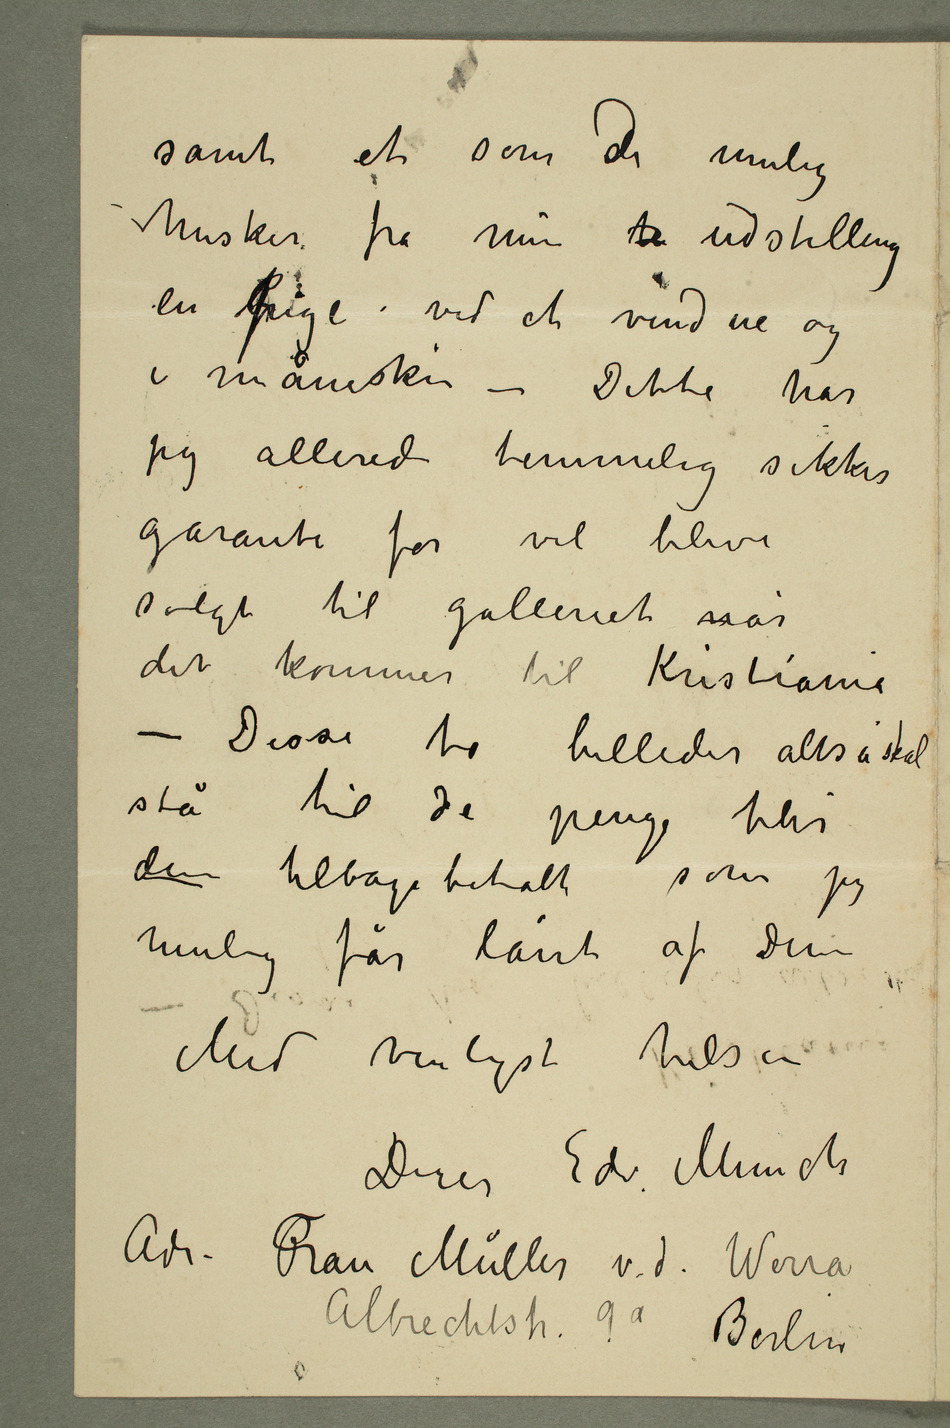 samt et som De mulig
husker fra min udstilling
en Pige ved et vindue og
i måneskin – Dette har
jeg allerede temmelig sikker
garanti for vil blive
solgt til galleriet når
det kommer til Kristiania
– Disse to billeder altså skal
stå til de penge blir
dem tilbagebetalt som jeg
mulig får lånt af Dem –
Med venligst hilsen
Deres Edv. Munch
Adr. Frau Müller v. d. Werra
Albrechtstr. 9a Berlin